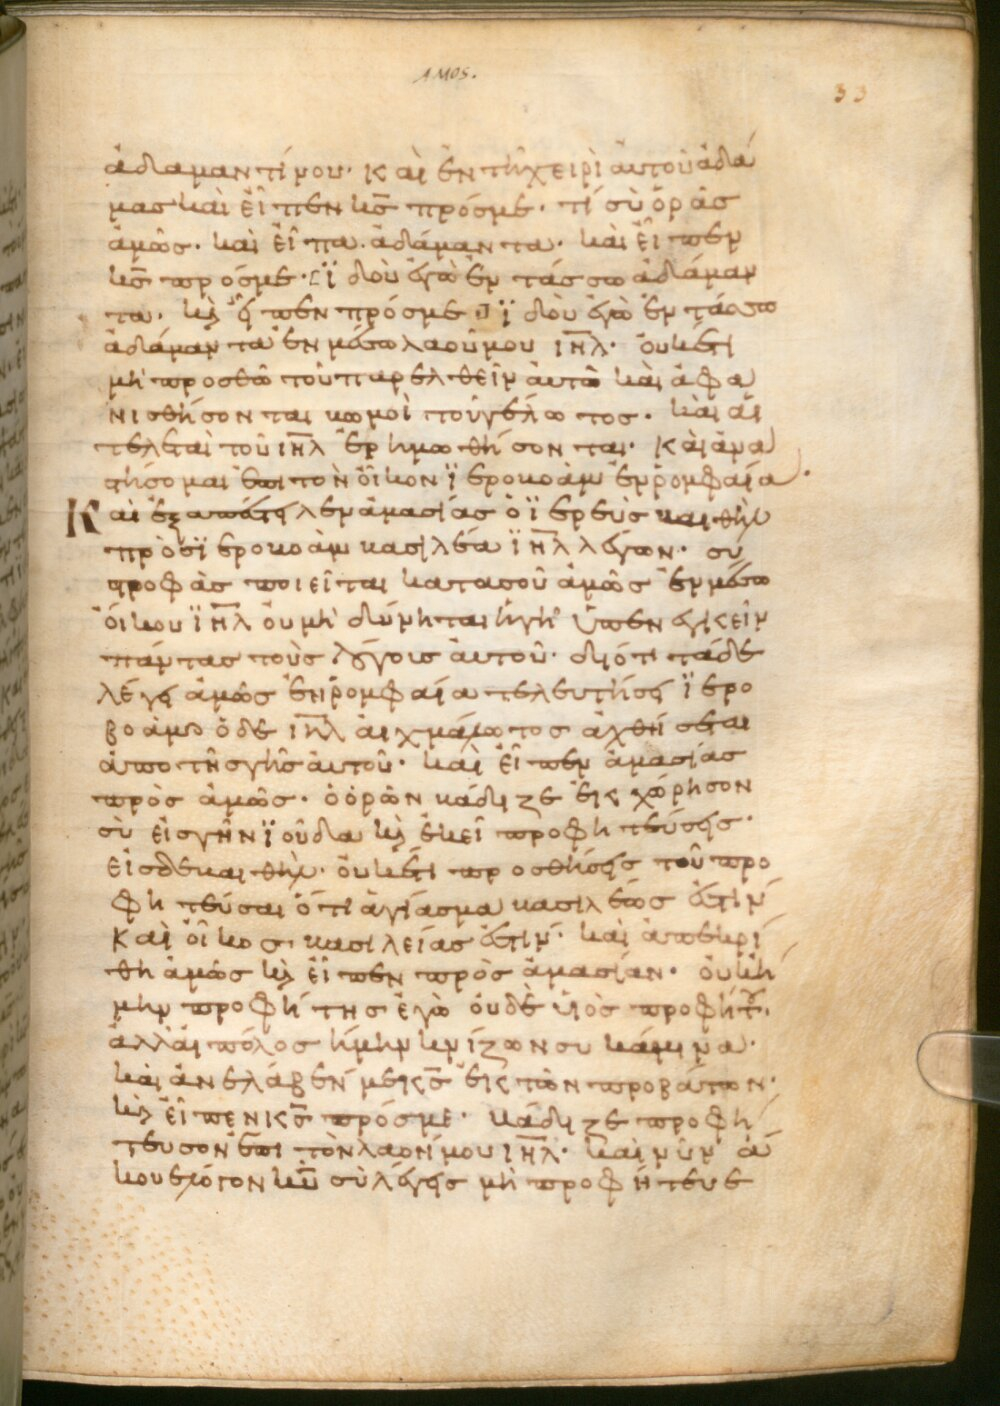 AMOS.
33
ἀδαμαντίνου· καὶ ἐν τῇ χειρὶ αὐτοῦ ἀδά
μας καὶ εἶπεν κ̅ς̅ πρόσ με· τί σὺ ὁρᾶς
ἀμώς· καὶ εἶπα· ἀδάμαντα· καὶ εἶπεν
κ̅ς̅ πρόσ με· [ϊδοὺ ἐγὼ ἐντάσσω ἀδάμαν
τα· κ̀ εἶπεν πρόσ με] ϊδοὺ ἐγὼ ἐντάσσω
ἀδάμαντα ἐν μέσω λαοῦ μου ι̅η̅λ̅· οὐκέτι
μὴ προσθῶ τοῦ παρελθεῖν αὐτὸ καὶ ἀφα
νισθήσονται βωμοὶ τοῦ γέλωτος· καὶ αἱ
τελεταὶ τοῦ ι̅η̅λ̅ ἐρημωθήσονται· καὶ ἀνα
στήσομαι ἐπὶ τὸν οἶκον ϊεροβοὰμ ἐν ῥομφαία·
Καὶ ἐξαπέστειλεν ἀμασίας ὁ ϊερεὺς βαιθὴλ
πρὸς ϊεροβοὰμ βασιλέα ϊ̅η̅λ̅ λέγων· συ
στροφὰς ποιεῖται κατα σοῦ ἀμὼς ἐν μέσω
οἴκου ϊ̅η̅λ̅ οὐ μὴ δύνηται ἡ γῆ ὑπενεγκεῖν
πάντας τοὺς λόγους αὐτοῦ· διότι τάδε
λέγει ἀμὼς ἐν ῥομφαία τελευτήσει ϊερο
βοάμ ὁ δὲ ι̅η̅λ̅ αἰχμάλωτος ἀχθήσεται
ἀπο τῆς γῆς αὐτοῦ· καὶ εἶπεν ἀμασίας
πρὸς ἀμώς· ὁ ὁρῶν βάδιζε ἐκχώρησον
σὺ εἰς γῆν ϊούδα κ̀ ἐκεῖ προφητεύσεις·
εἰς δὲ βαιθὴλ· οὐκέτι προσθήσεις τοῦ προ
φητεῦσαι ὅτι ἁγίασμα βασιλέως ἐστίν
καὶ οἶκος βασιλείας ἐστίν· καὶ ἀπεκρί
θη ἀμὼς κ̀ εἶπεν πρὸς ἀμασίαν· οὐκ ἤ
μην προφήτης ἐγὼ οὐδὲ υἱὸς προφήτ(ου)·
ἀλλ' αἰπόλος ἤμην κνίζων συκάμινα·
καὶ ἀνέλαβέν με κ̅ς̅ ἐκ τῶν προβάτων·
κ̀ εἶπεν κ̅ς̅ πρόσ με· βάδιζε προφή
τευσον ἐπὶ τὸν λαόν μου ι̅η̅λ̅· καὶ νῦν ἄ
κουε λόγον κ̅υ̅ σὺ λέγεις μὴ προφήτευε